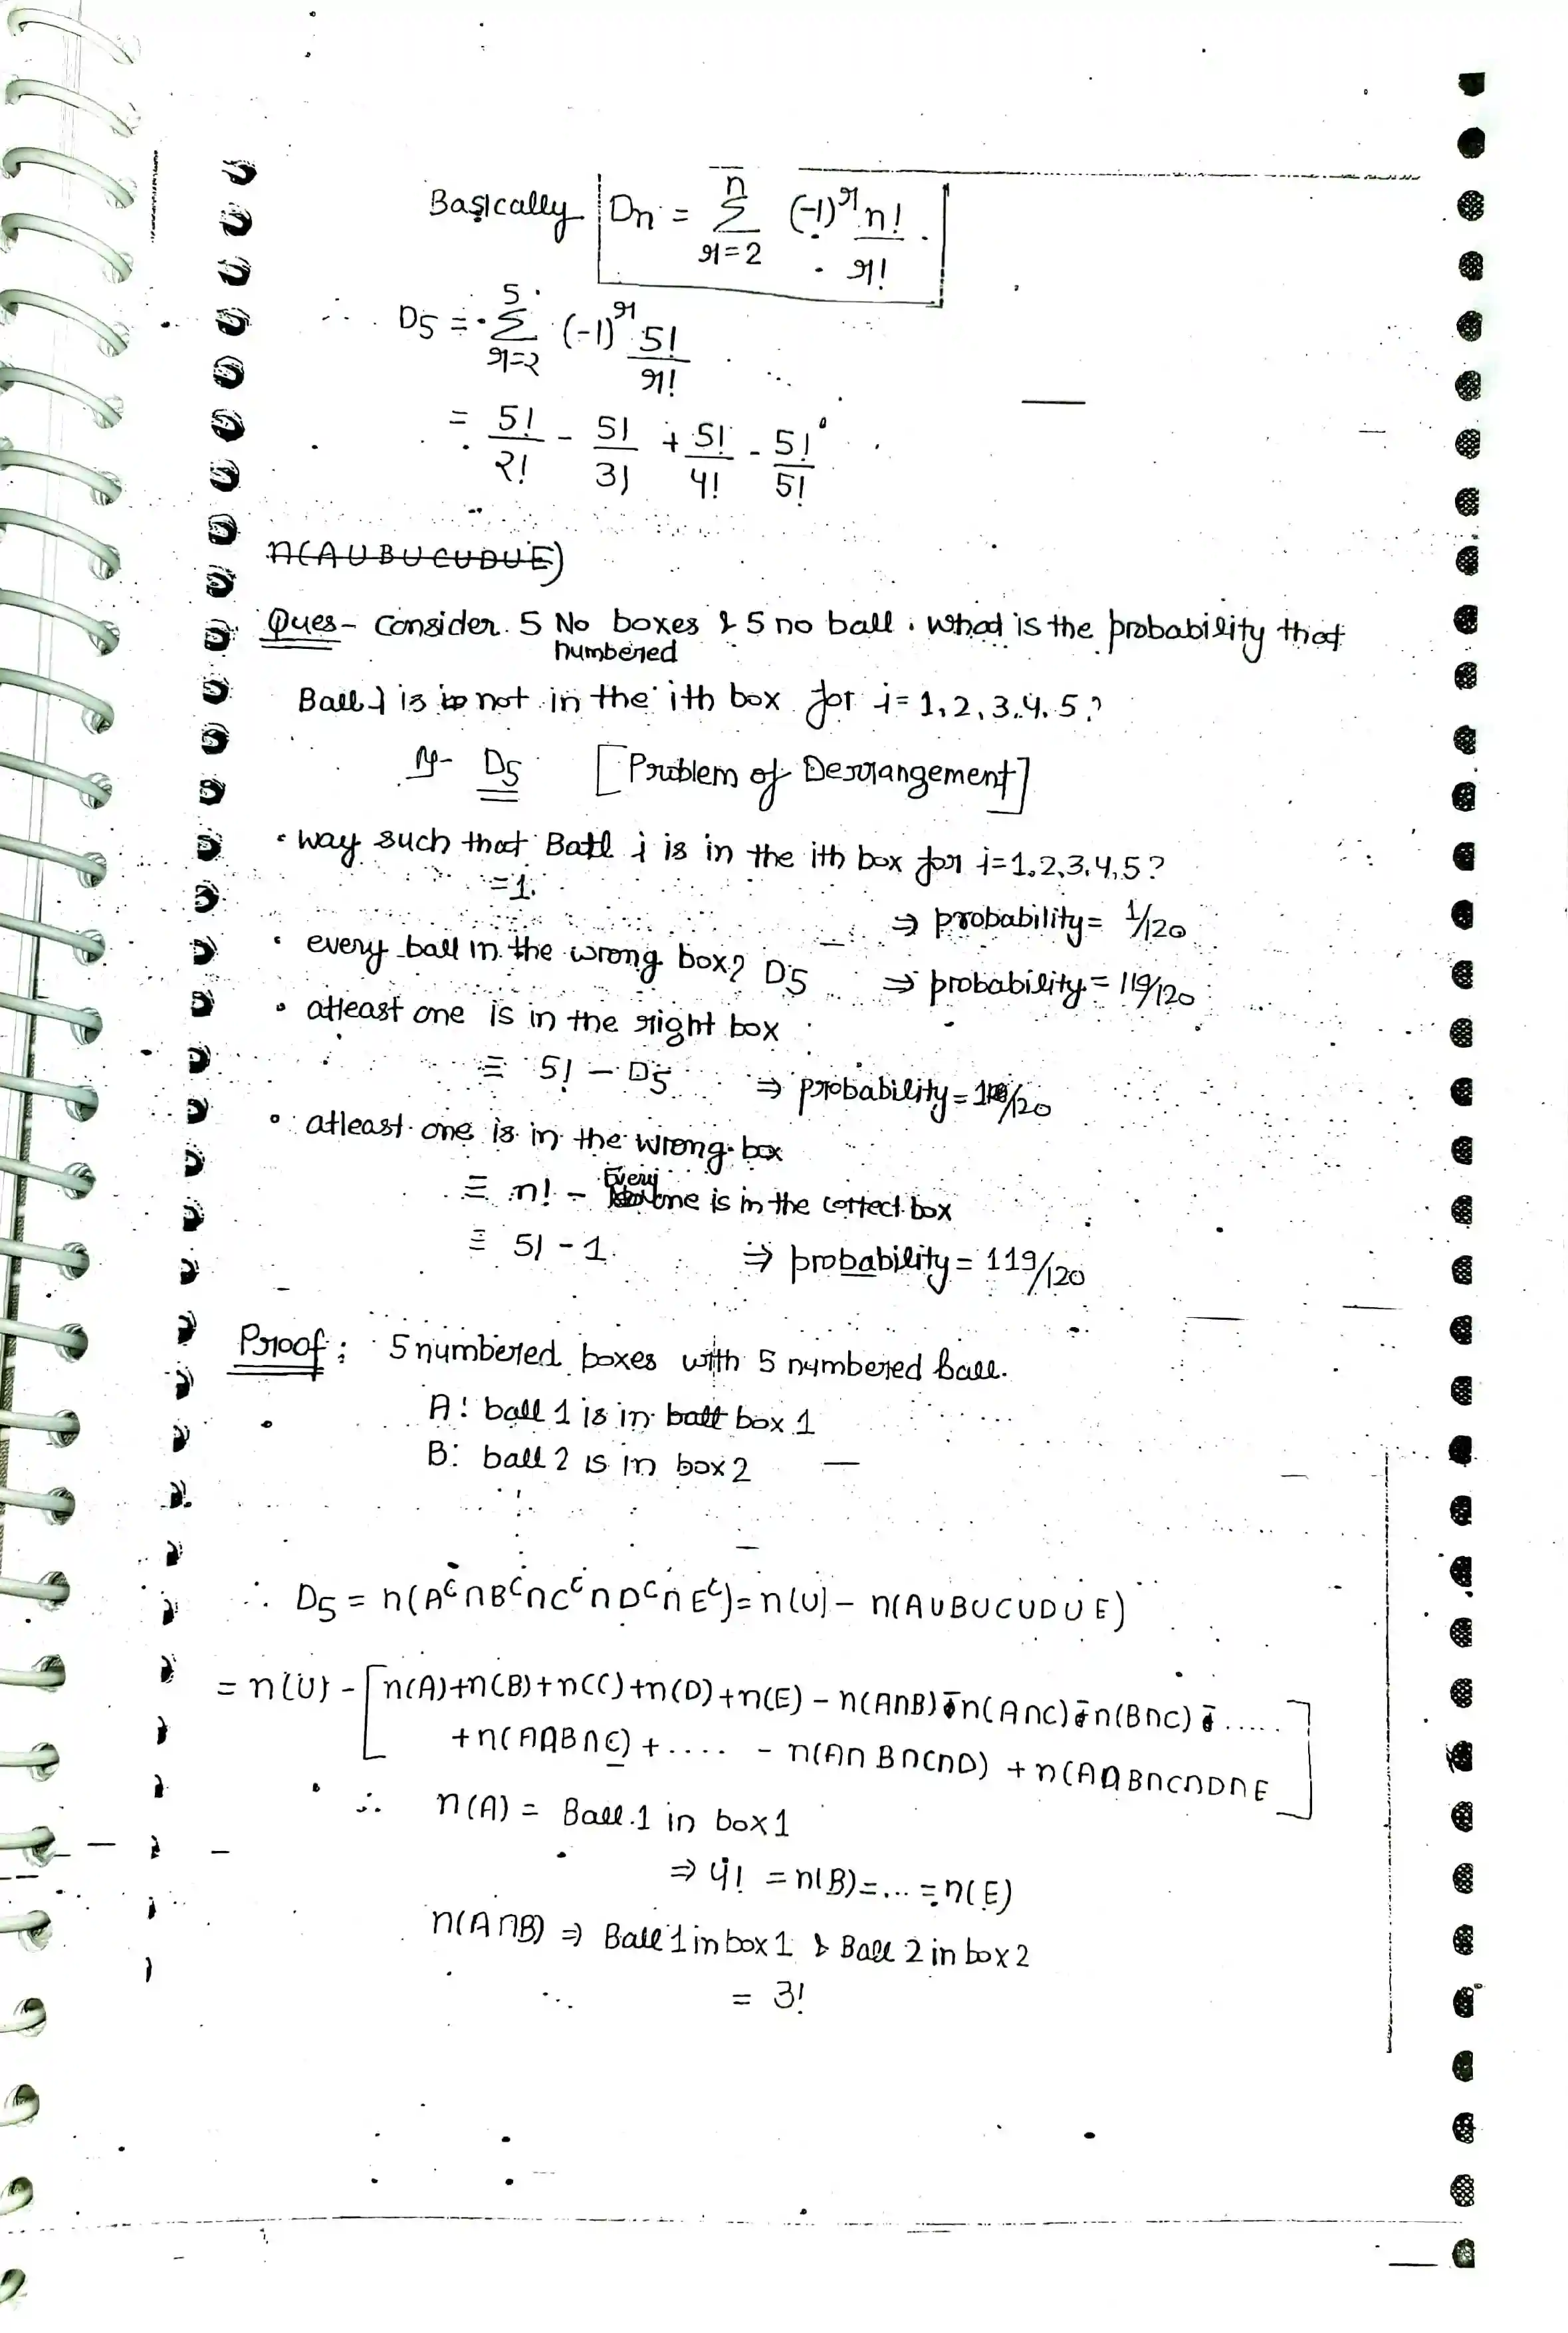 Basically Dn = n Σ r=2 (-1)^r n!/r!
∴ D5 = 5 Σ r=2 (-1)^r 5!/r!
= 5!/2! - 5!/3! + 5!/4! - 5!/5!
n(AUBUCUDUE)
Ques - Consider 5 No boxes & 5 no ball. What is the probability that
numbered
Ball i is not in the ith box for i = 1, 2, 3, 4, 5?
D5 [Problem of Derrangement]
• way such that Ball i is in the ith box for i=1,2,3,4,5?
=1. ⇒ probability = 1/120
• every ball in the wrong box? D5 ⇒ probability = 119/120
• atleast one is in the right box
≡ 5! - D5 ⇒ probability = /120
• atleast one is in the wrong box
≡ n! - Every one is in the correct box
≡ 5! - 1 ⇒ probability = 119/120
Proof: 5 numbered boxes with 5 numbered ball.
A: ball 1 is in ball box 1
B: ball 2 is in box 2
∴ D5 = n(A^c∩B^c∩C^c∩D^c∩E^c) = n(U) - n(AUBUCUDUE)
= n(U) - [n(A)+n(B)+n(C)+n(D)+n(E) - n(A∩B) - n(A∩C) - n(B∩C) - .....
+ n(A∩B∩C) + .... - n(A∩B∩C∩D) + n(A∩B∩C∩D∩E]
∴ n(A) = Ball 1 in box 1
⇒ 4! = n(B) = ... = n(E)
n(A∩B) ⇒ Ball 1 in box 1 & Ball 2 in box 2
= 3!